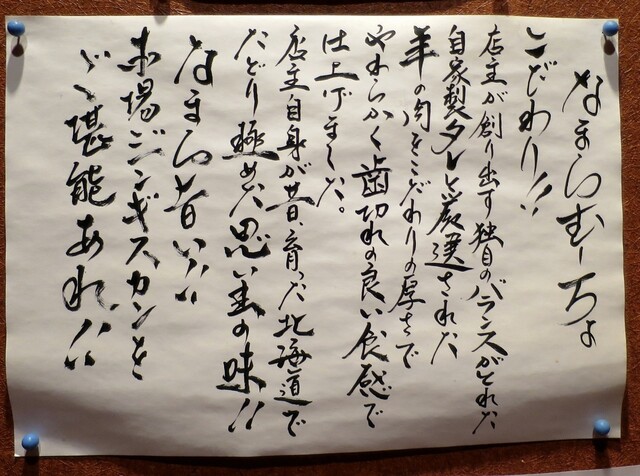 なまらむーちょ
こだわり!!
店主が創り出す独自のバランスがとれた
自家製タレと厳選された
羊の肉をこだわりの厚さで
やわらかく歯切れの良い食感で
仕上げました。
店主自身が昔、育った北海道で
たどり極めた思い出の味!!
なまら旨い!!
本場ジンギスカンを
ご堪能あれ!!